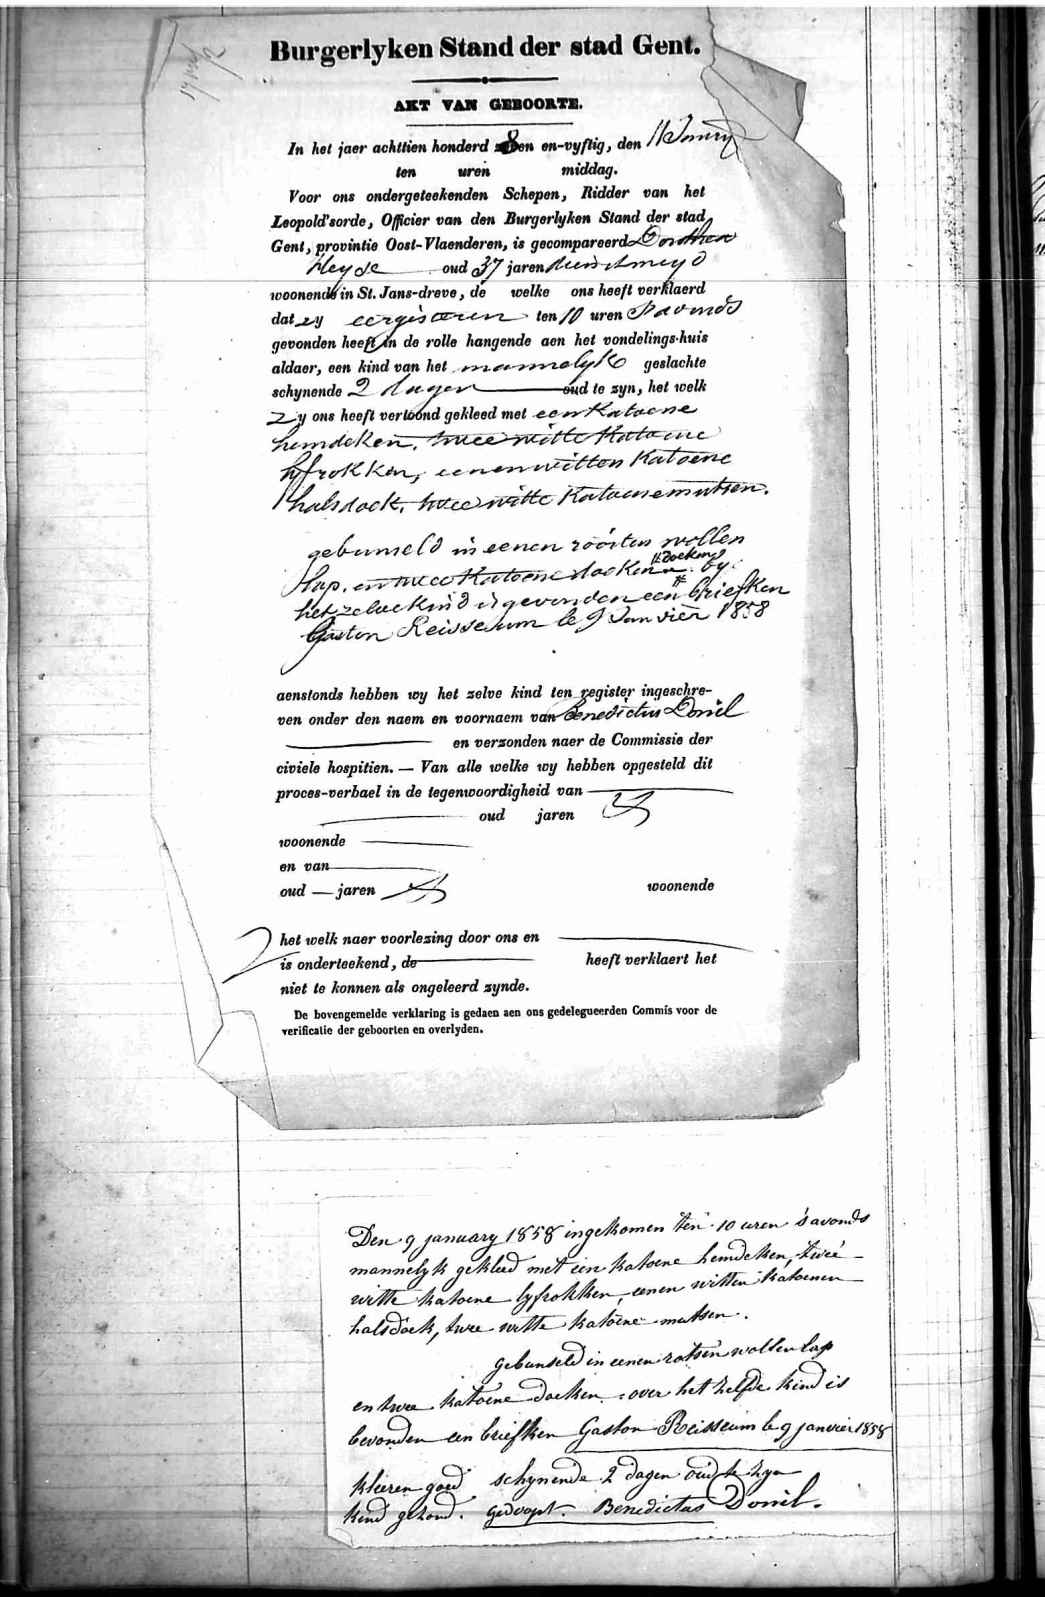 Burgerlyken Stand der stad Gent.
AKT VAN GEBOORTE.
In het jaer achttien honderd 8 en en-vyftig, den 11 January
ten uren middag.
Voor ons ondergeteekenden Schepen, Ridder van het
Leopold'sorde, Officier van den Burgerlyken Stand der stad
Gent, provintie Oost-Vlaenderen, is gecompareerd Dorothea
Heyse oud 37 jaren dienstmeyd
woonende in St. Jans-dreve, de welke ons heeft verklaerd
dat zy eergisteren ten 10 uren s'avonds
gevonden heeft in de rolle hangende aen het vondelings-huis
aldaer, een kind van het mannelyk geslachte
schynende 2 dagen oud te zyn, het welk
zy ons heeft vertoond gekleed met een katoene
hemdeken, twee witte katoene
lyfrokken, eenen witten katoene
halsdoek, twee witte katoene mutsen.
gebunseld in eenen wollen
lap, en twee katoene doeken by
# doeken
het zelve kind is gevonden een briefken
Gaston Reisseum le 9 Janvier 1858
aenstonds hebben wy het zelve kind ten register ingeschre-
ven onder den naem en voornaem van Benedictus Donil
en verzonden naer de Commissie der
civiele hospitien. — Van alle welke wy hebben opgesteld dit
proces-verbael in de tegenwoordigheid van
oud jaren
woonende
en van
oud — jaren woonende
het welk naer voorlezing door ons en
is onderteekend, de heeft verklaert het
niet te konnen als ongeleerd zynde.
De bovengemelde verklaring is gedaen aen ons gedelegueerden Commis voor de
verificatie der geboorten en overlyden.
Den 9 january 1858 ingekomen ten 10 uren s'avonds
mannelyk gekleed met een katoene hemdeken, twee
witte katoene lyfrokken, eenen witten katoenen
halsdoek, twee witte katoene mutsen.
gebunseld in eenen wollen lap
en twee katoene doeken over het zelfde kind is
bevonden een briefken Gaston Reisseum le 9 janvier 1858
kleeren goed schynende 2 dagen oud te zyn
kind gezond. gedoopt. Benedictus Donil.